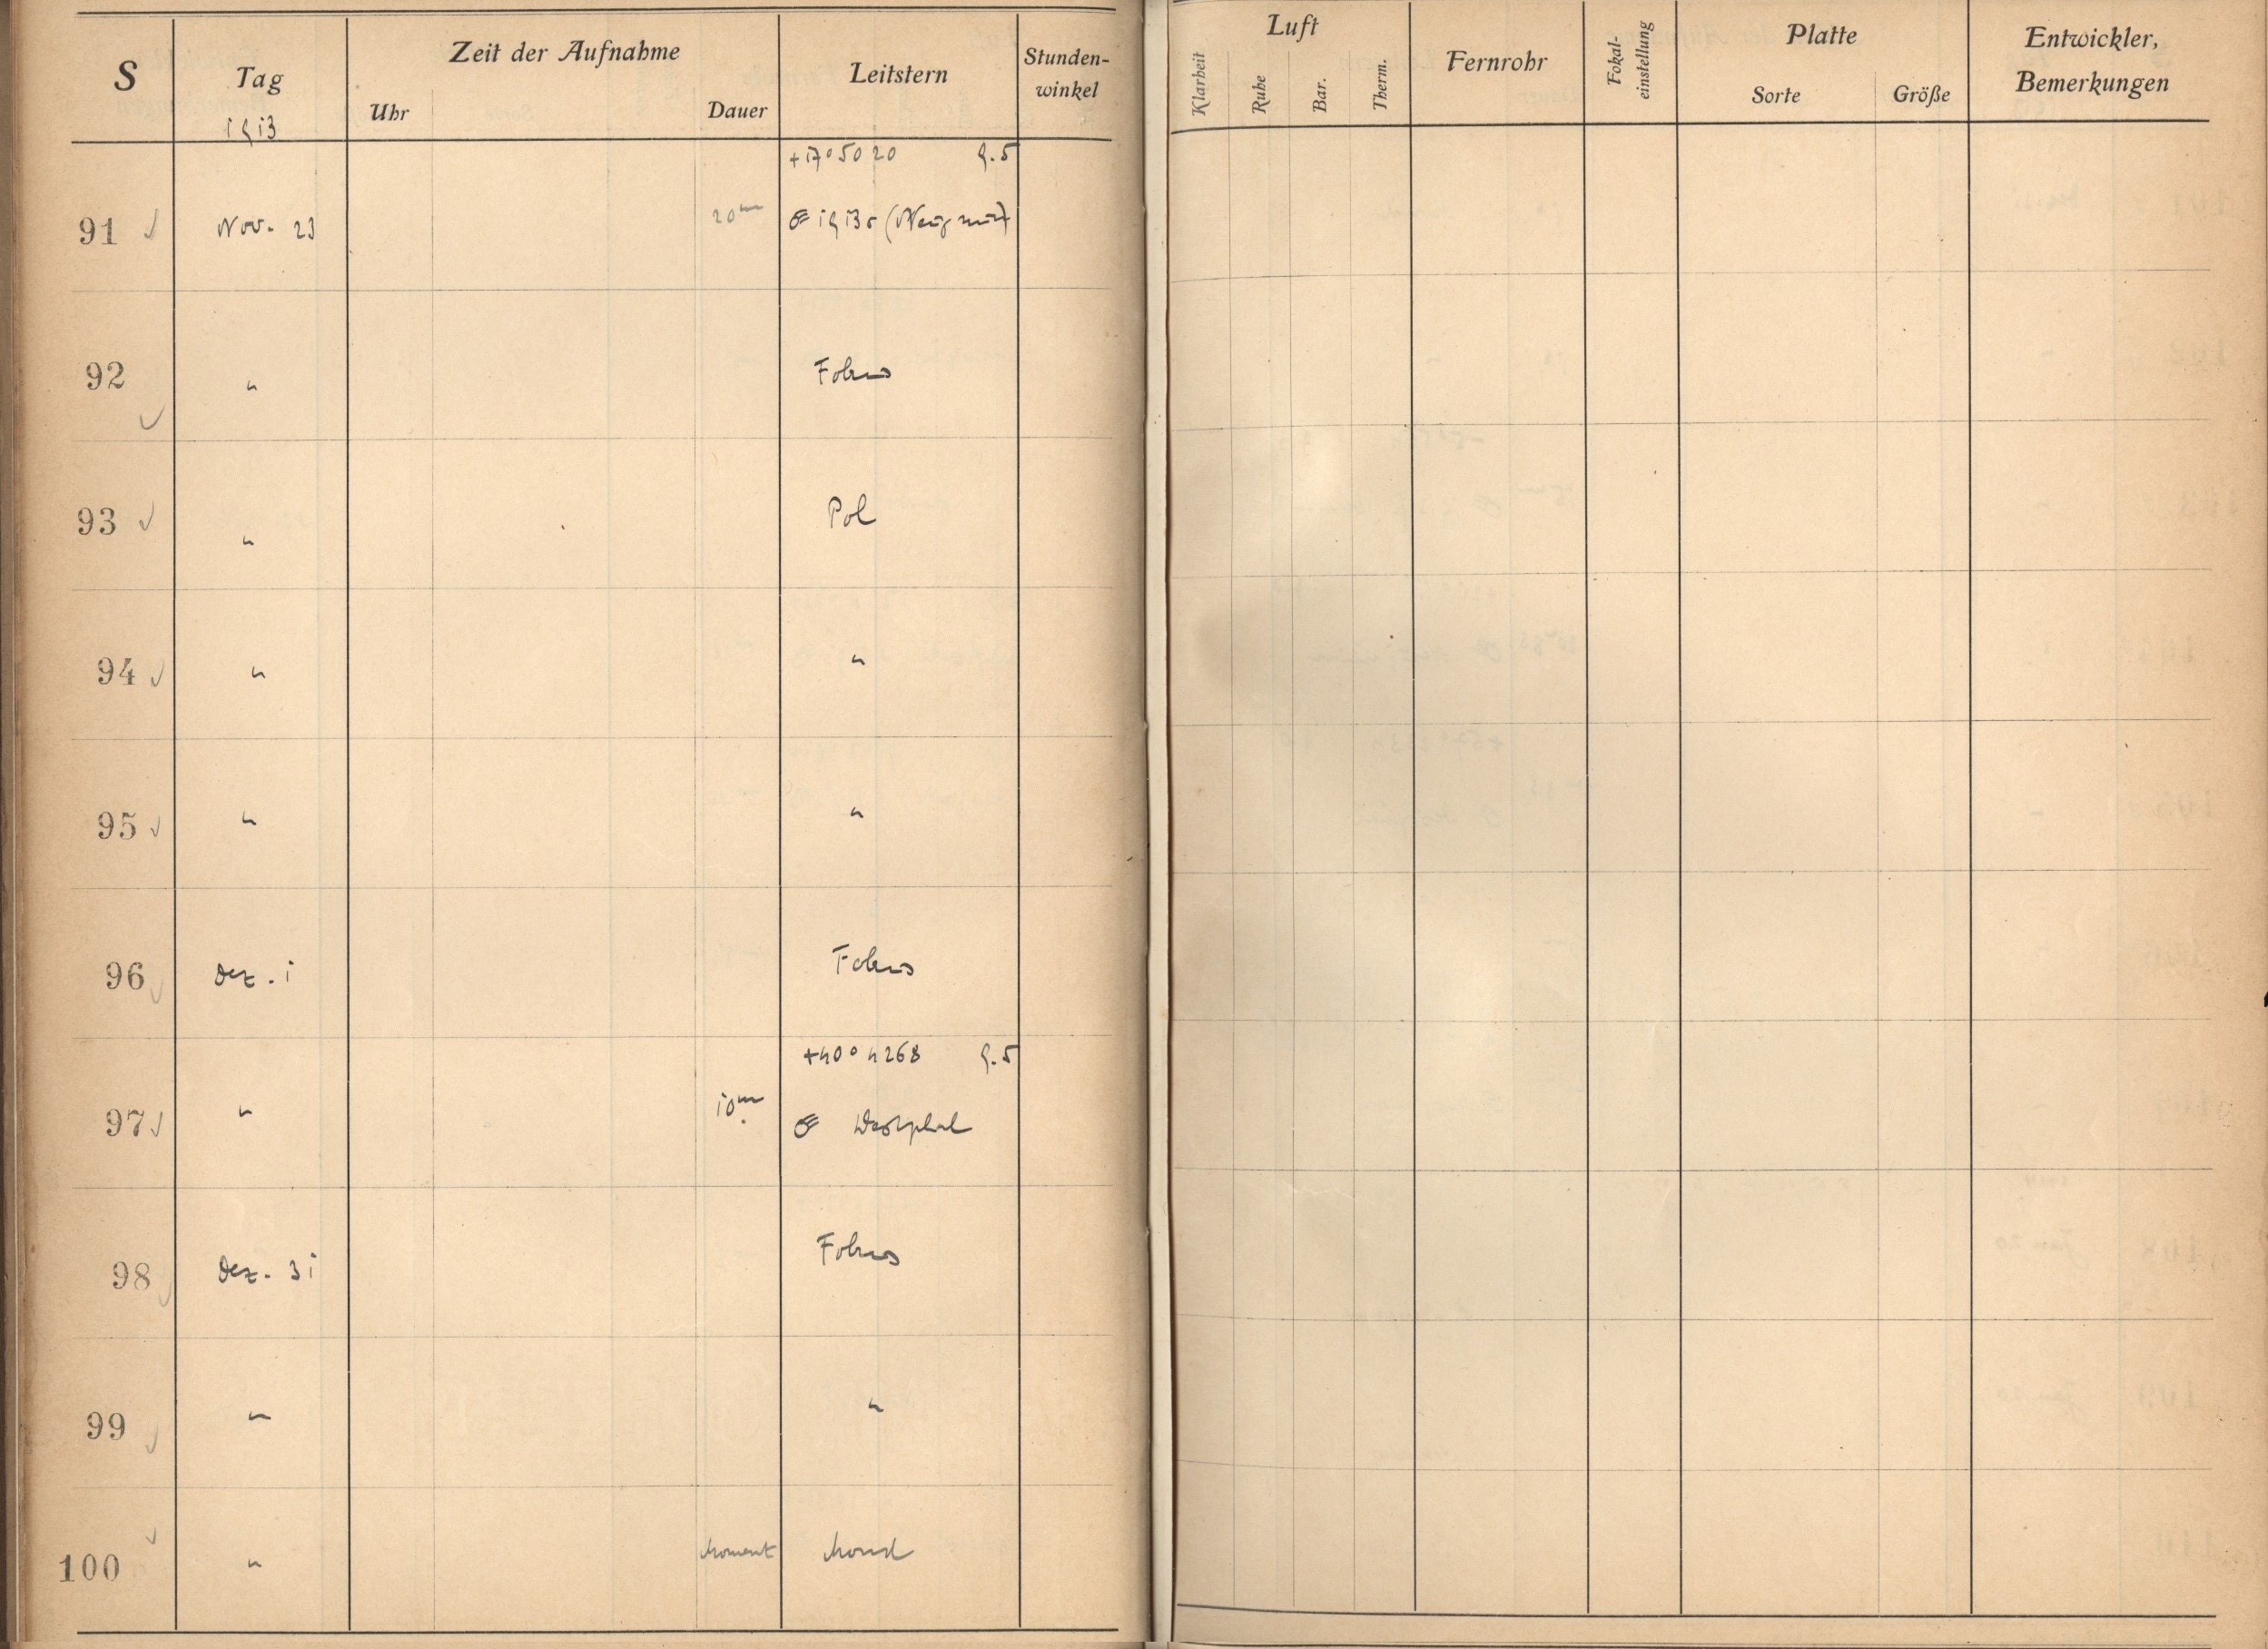 S Tag Zeit der Aufnahme Leitstern Stunden-
winkel
Uhr Dauer
1913
Luft Fernrohr Fokal-
einstellung Platte Entwickler,
Bemerkungen
Klarheit Ruhe Bar. Therm. Sorte Größe
+17° 5020 9.5
91 Nov. 23 20m ☄ 1913
92 " Fokus
93 " Pol
94 " "
95 " "
96 Dez. 1 Fokus
+40° 4268 9.5
97 " 10m ☄ Westphal
98 Dez. 31 Fokus
99 " "
100 " Moment Mond